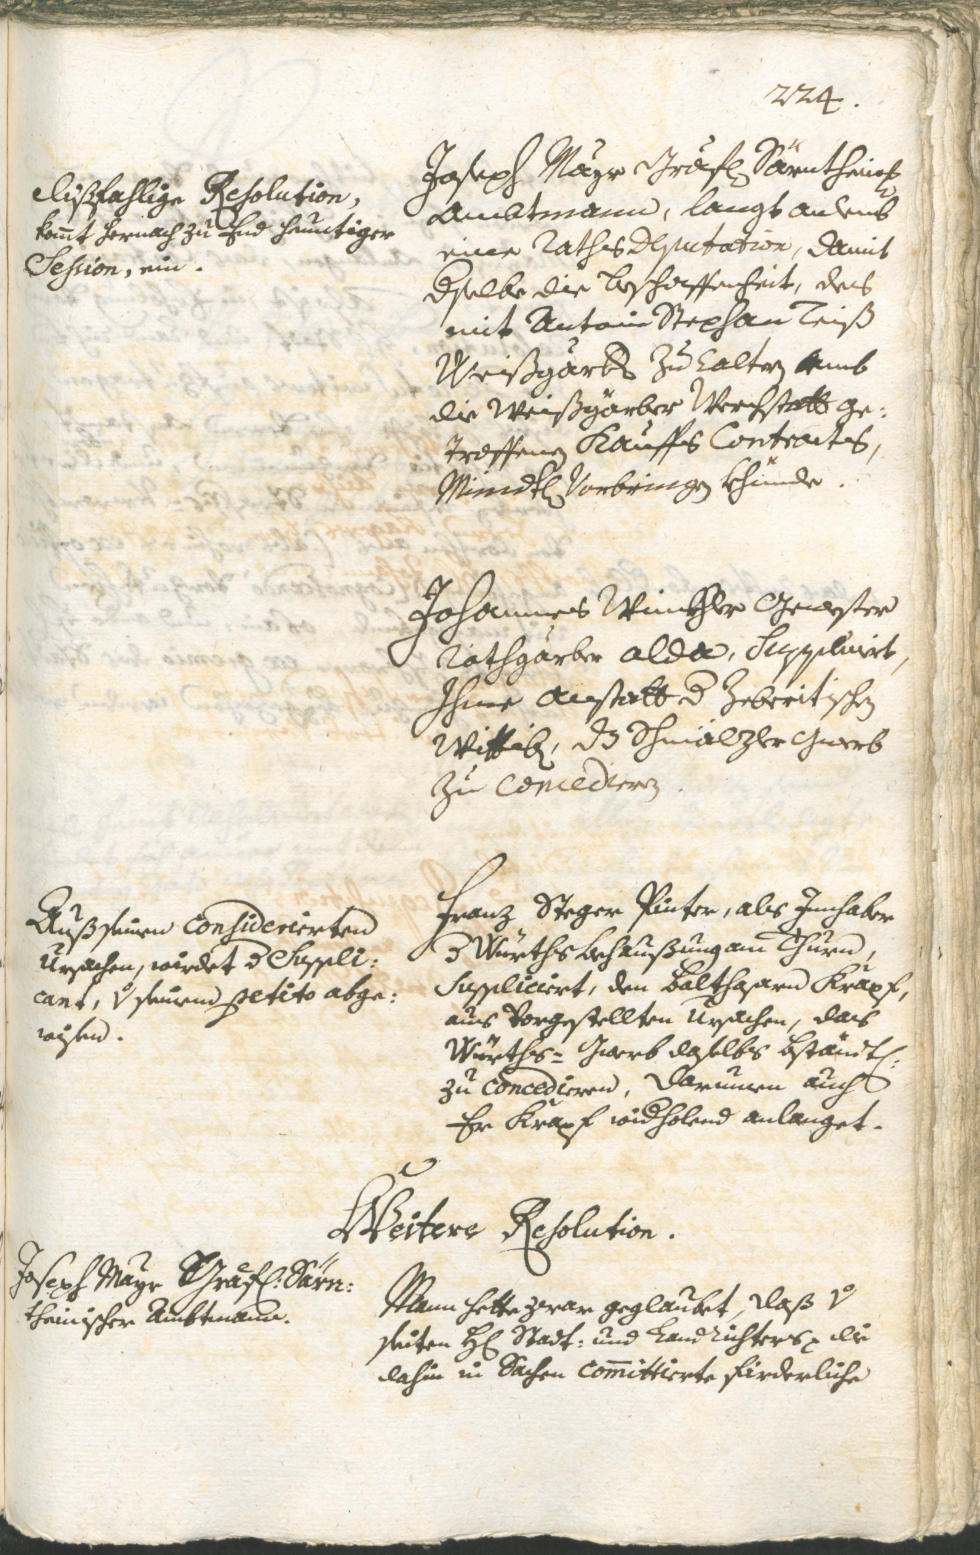 224.
dißfahlige Resolution,
komt hernach zu End heuntiger
Session, ein.
Joseph Mayr Gräfl Särntheinis
Ambtmann, langt an umb
eine Raths Deputation, damit
dselbe die beschaffenheit, des
mit Antoni Stephan Teiß
Weißgärber zu Caltern umb
die Weißgärber Werchstatt ge:
troffenen Kauffs Contracts,
Mündtl vorbringen khünde.
Johannes Winkhler Gewester
Rothgärber alda, Supplicirt,
Ihme anstatt d
Wittib, dz Schmälzler Gwerb
zu Concediern.
Auß seinen considerierten
Ursachen, wirdet d Suppli:
cant, v seinem petito abge:
wisen.
Franz Steger Pinter, als Inhaber
d Würthsbehaußung am Thurn,
Suppliciert, den Balthasarn Krapf,
aus vorgestellten Ursachen, das
Würths= Gwerb daselbs bständtl:
zu concedieren, darumen auch
Er Krapf widholend anlanget.
Weitere Resolution.
Joseph Mayr Gräfl: Särn:
theinischer Ambtmann.
Mann hette zwar geglaubet, daß v
seiten H Stadt: und Landrichters die
dahin in Sachen committierte fürderliche